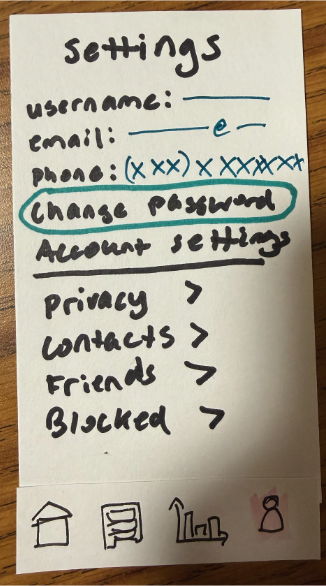 settings
username: ______
email: ____@__
phone: (xxx) x xxxxxx
Change password
Account settings
Privacy >
Contacts >
Friends >
Blocked >